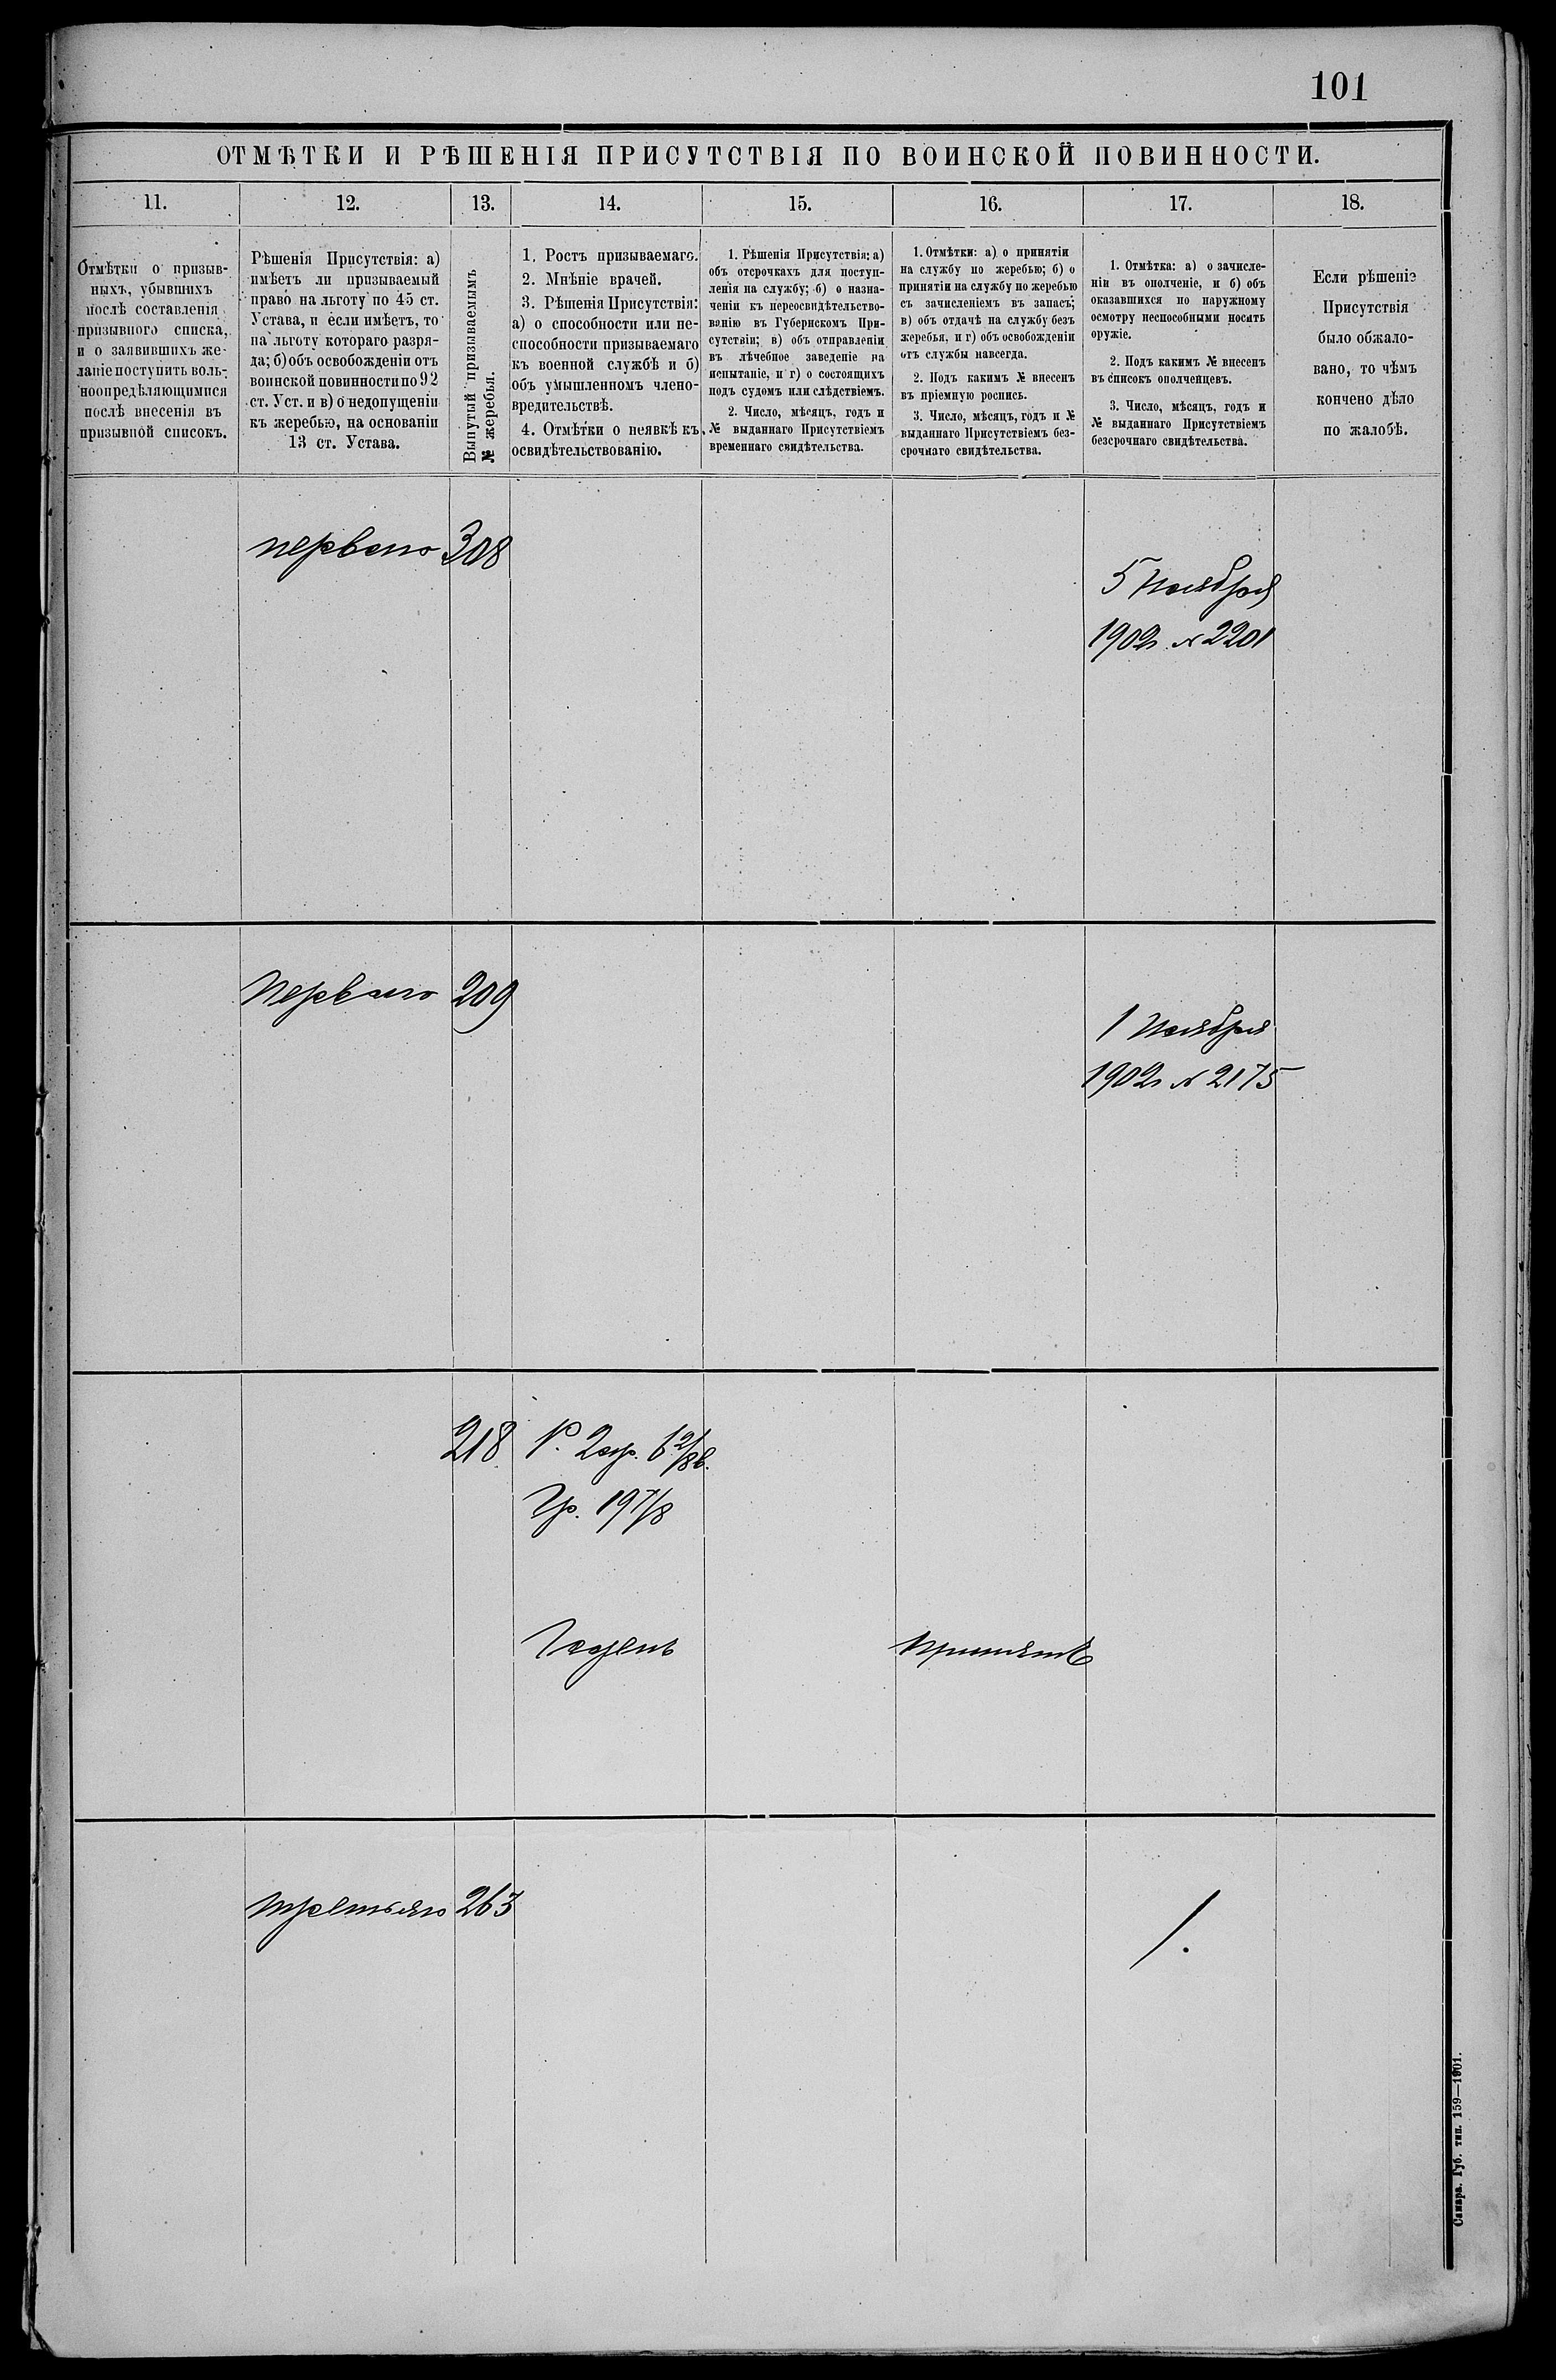 101
ОТМѢТКИ И РѢШЕНІЯ ПРИСУТСТВІЯ ПО ВОИНСКОЙ ПОВИННОСТИ.
11.
12.
13.
14.
15.
16.
17.
18.
Отмѣтки о призыв-
ныхъ, убывшихъ
послѣ составленія
призывного списка,
и о заявившихъ же-
ланіе поступить воль-
ноопредѣляющимися
послѣ внесенія въ
призывной списокъ.
Рѣшенія Присутствія: а)
имѣетъ ли призываемый
право на льготу по 45 ст.
Устава, и если имѣетъ, то
на льготу котораго разря-
да; б) объ освобожденіи отъ
воинской повинности по 92
ст. Уст. и в) о недопущеніи
къ жеребью, на основаніи
13 ст. Устава.
Вынутый призываемымъ
№ жеребья.
1. Ростъ призываемаго.
2. Мнѣніе врачей.
3. Рѣшенія Присутствія:
а) о способности или не-
способности призываемаго
къ военной службѣ и б)
объ умышленномъ члено-
вредительствѣ.
4. Отмѣтки о неявкѣ къ
освидѣтельствованію.
1. Рѣшенія Присутствія: а)
объ отсрочкахъ для поступ-
ленія на службу; б) о назна-
ченіи къ переосвидѣтельство-
ванію въ Губернскомъ При-
сутствіи; в) объ отправленіи
въ лѣчебное заведеніе на
испытаніе, и г) о состоящихъ
подъ судомъ или слѣдствіемъ.
2. Число, мѣсяцъ, годъ и
№ выданнаго Присутствіемъ
временнаго свидѣтельства.
1. Отмѣтки: а) о принятіи
на службу по жеребью; б) о
принятіи на службу по жеребью
съ зачисленіемъ въ запасъ;
в) объ отдачѣ на службу безъ
жеребья, и г) объ освобожденіи
отъ службы навсегда.
2. Подъ какимъ № внесенъ
въ пріемную роспись.
3. Число, мѣсяцъ, годъ и №
выданнаго Присутствіемъ без-
срочнаго свидѣтельства.
1. Отмѣтка: а) о зачисле-
ніи въ ополченіе, и б) объ
оказавшихся по наружному
осмотру неспособными носить
оружіе.
2. Подъ какимъ № внесенъ
въ списокъ ополченцевъ.
3. Число, мѣсяцъ, годъ и
№ выданнаго Присутствіемъ
безсрочнаго свидѣтельства.
Если рѣшеніе
Присутствія
было обжало-
вано, то чѣмъ
кончено дѣло
по жалобѣ.
перваго 308
5 Ноября
1902г. № 2201
Перваго 209
1 Ноября
1902г № 2175
218. Р. 2 ар. 6 2/8 в.
Гр. 19 7/8
Годенъ
Принятъ
третьяго 263
1.
Самара. Губ. тип. 159—1901.